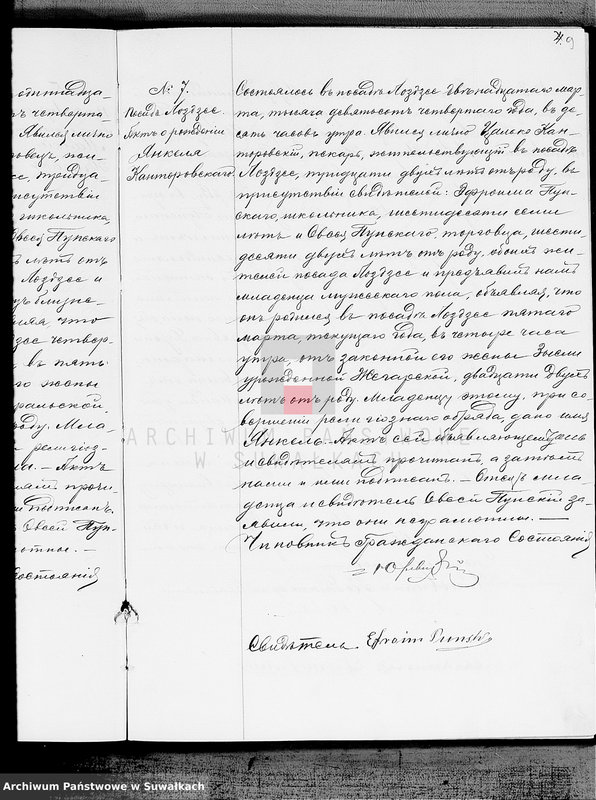 4. 9
№ 7.
Посадъ Лоздзее
Актъ о рожденіи
Янкеля
Канторовскаго
Состоялось въ посадѣ Лоздзее двѣнадцатаго мар
та, тысяча девятьсотъ четвертаго года, въ де-
сять часовъ утра. Явился лично Кан-
торовскій, пекарь, жительствующій въ посадѣ
Лоздзее, тридцати двухъ лѣтъ отъ роду, въ
присутствіи свидѣтелей: Эфроима Пун-
скаго, школьника, шестидесяти семи
лѣтъ и Овсея Пунскаго, торговца, шести-
десяти двухъ лѣтъ отъ роду, обоихъ жи-
телей посада Лоздзее и предъявилъ намъ
младенца мужескаго пола, объявляя, что
онъ родился въ посадѣ Лоздзее пятаго
марта, текущаго года, въ четыре часа
утра, отъ законной его жены
урожденной Жегарской, двадцати двухъ
лѣтъ отъ роду. Младенцу этому, при со-
вершеніи религіознаго обряда, дано имя
Янкель. Актъ сей объявляющему
и свидѣтелямъ прочитанъ, а затѣмъ
нами и ими подписанъ. – Отецъ мла-
денца и свидѣтель Овсей Пунскій за-
явили, что они неграмотны. –
Чиновникъ Гражданскаго Состоянія
Свидѣтель Efroim Punski
отнадца-
четверта-
Явился лично
присутствіи
школьника,
Овсей Пунскаго
лѣтъ отъ
Лоздзее и
что
четвер
въ пять
го жены
роду. Мла-
религіоз-
Актъ
прочи-
подписанъ
Овсей Пун-
Состоянія
ARCHIWUM PAŃSTWOWE
W SUWAŁKACH
Archiwum Państwowe w Suwałkach